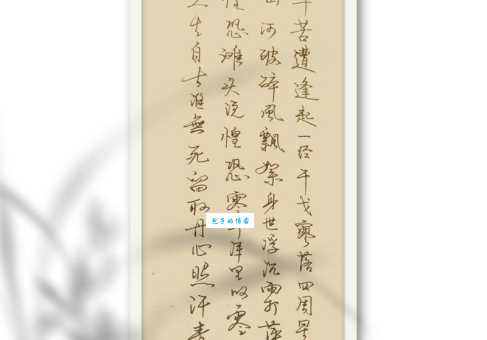 苦遭逢起一经干戈寥落四周星
河破碎風飄絮身世浮沉雨打萍
惶恐滩头说惶恐零丁洋里叹零
人生自古谁無死留取丹心照汗青